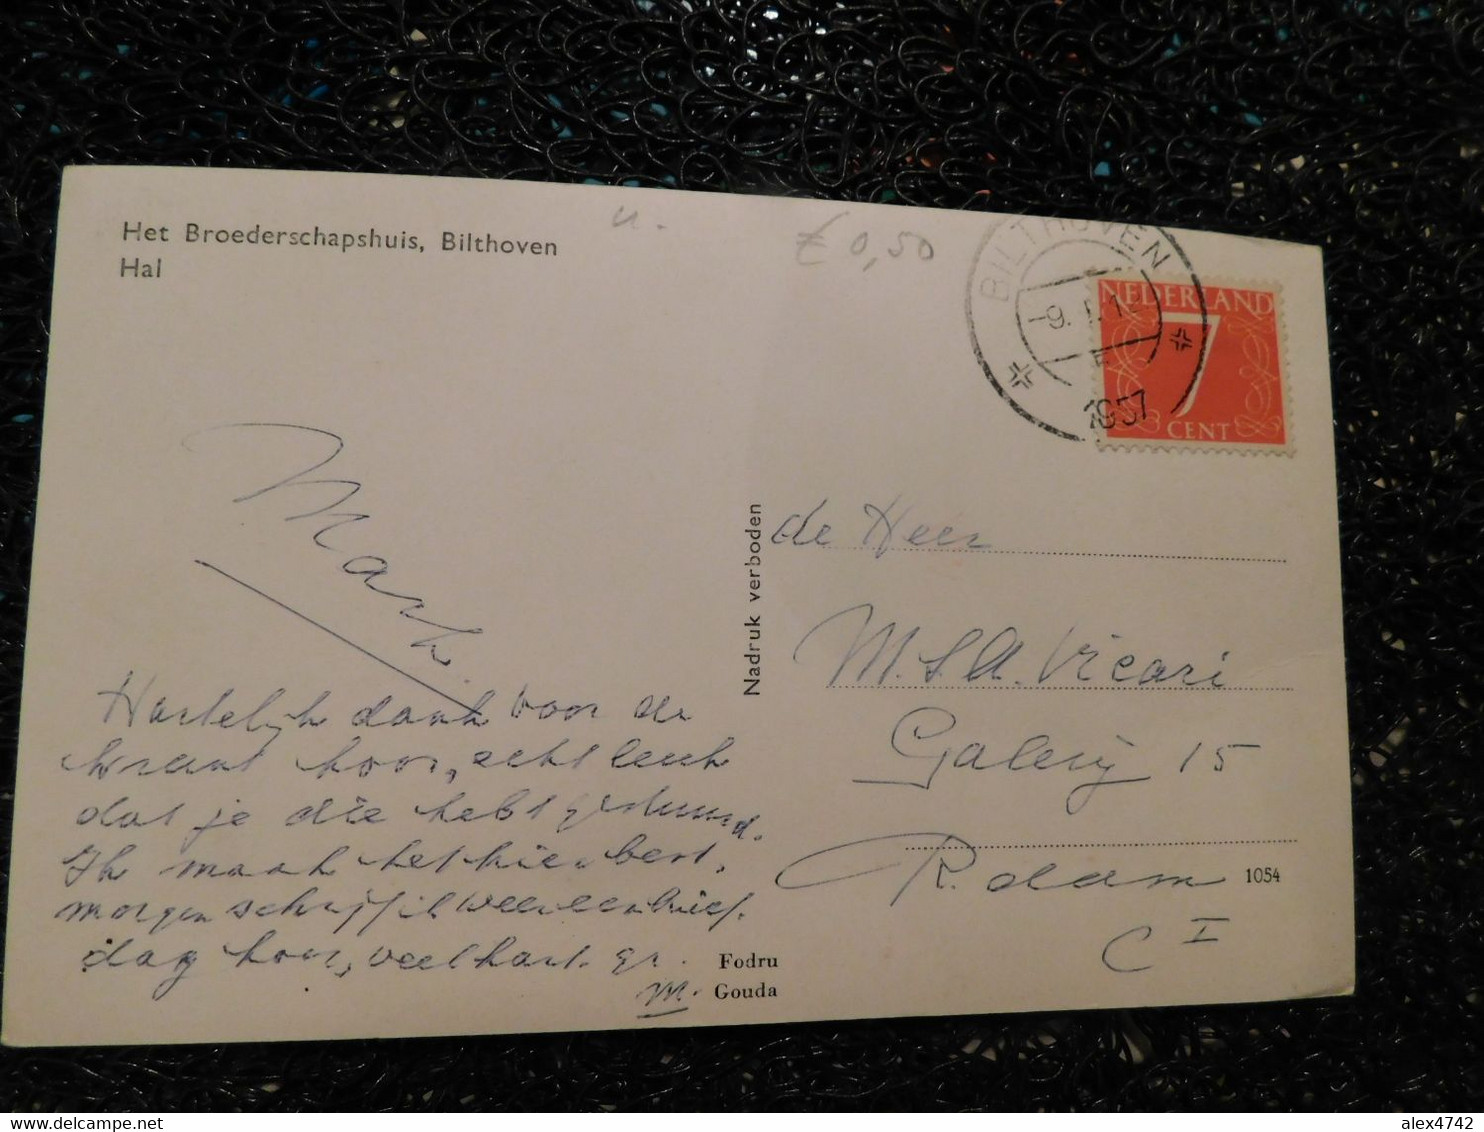 Het Broederschapshuis, Bilthoven
Hal
u.
€ 0,50
BILTHOVEN
1957
NEDERLAND
7
CENT
Mark.
Hartelijk dank voor de
krant hoor, echt leuk
dat je die hebt gestuurd.
Ik maak het hier best,
morgen schrijf ik weer een brief.
dag hoor, veel hart. gr.
M.
Nadruk verboden
Fodru
Gouda
de Heer
M.S.A. Vicari
Galerij 15
R. dam
C I
1054
alex4742